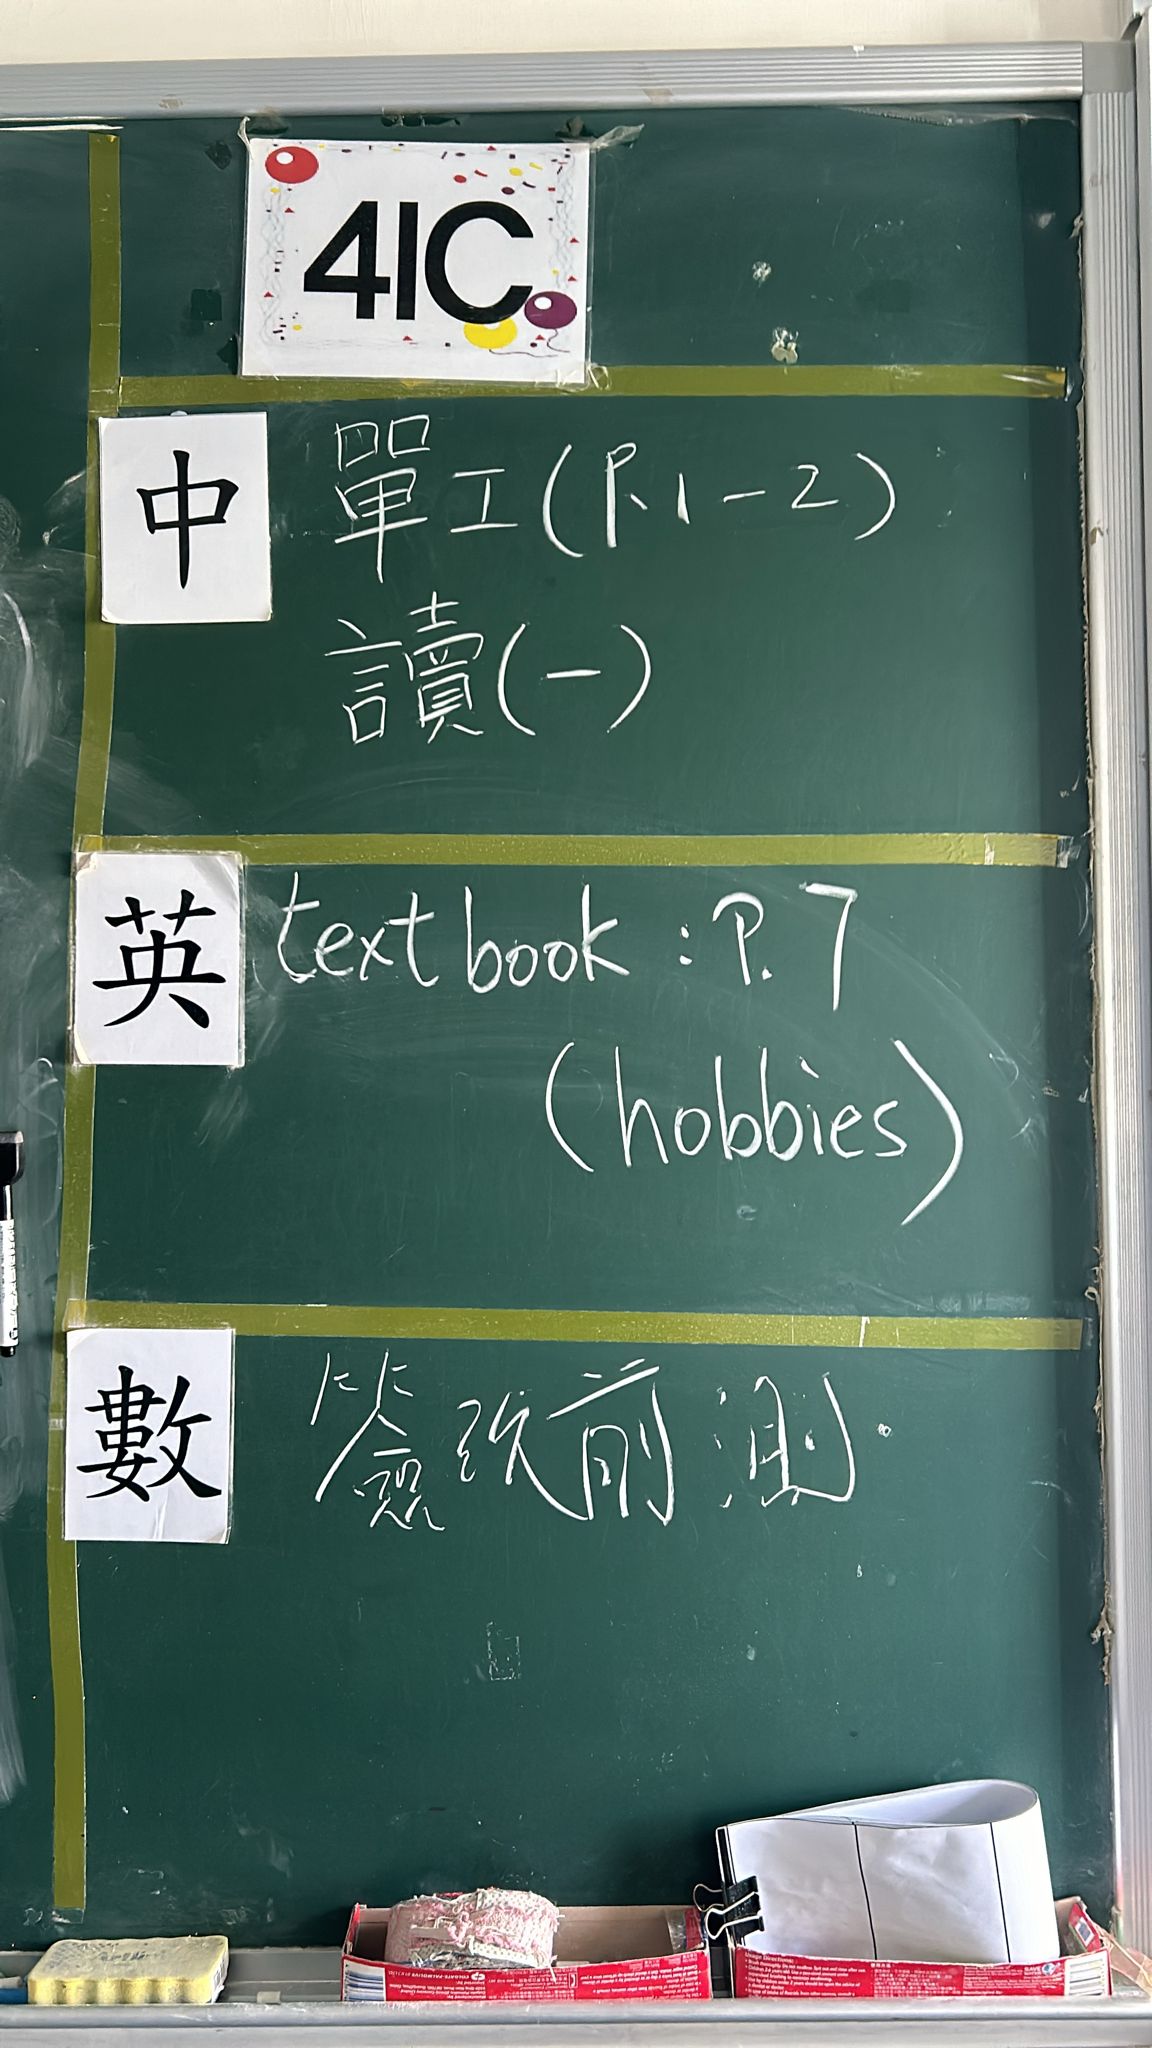 4IC
中
單工(P.1-2)
讀(一)
英
textbook : P. 7
(hobbies)
數
簽改前測